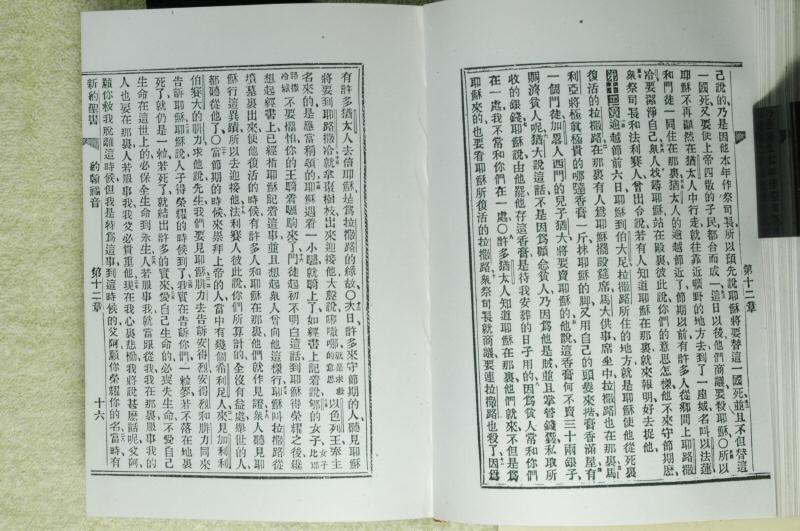 己說的乃是因他本年作祭司長所以預先說耶穌將要替這一國死並且不但替這
一國死又要使上帝四散的子民都合而成一這日以後他們商議要殺耶穌〇所以
耶穌不再顯然在猶太人中行走就往靠近曠野的地方去到了一座城名叫以法蓮
和門徒一同住在那裏猶太人的逾越節近了節期以前有許多人從鄉間上耶路撒
冷要潔淨自己衆人找尋耶穌站在殿裏彼此說你們的意思怎樣他不來守節期麼
衆祭司長和法利賽人曾出命說若有人知道耶穌在那裏就來報明好去捉他
第十二章 逾越節前六日耶穌到伯大尼拉撒路所住的地方就是耶穌使他從死裏
復活的拉撒路那裏有人爲耶穌擺設筵席馬大供事席坐中拉撒路也在那裏馬
利亞將極貴的哪噠香膏一斤抹耶穌的脚又用自己的頭髮來揩膏香滿屋有
一個門徒加畧人西門的兒子猶大將要賣耶穌的他說這香膏何不賣三十兩銀子
賙濟貧人呢猶大說這話不是因爲顧念貧人乃因爲他是賊並且掌管錢囊私取所
收的銀錢耶穌說由他罷他存這香膏是待我安葬的日子用的因爲貧人常和你們
在一處我不常和你們在一處〇許多猶太人知道耶穌在那裏他們就來不但是爲
耶穌來的也要看耶穌所復活的拉撒路衆祭司長就商議要連拉撒路也殺了因爲
第十二章
有許多猶太人去信耶穌是爲拉撒路的緣故〇次日許多來守節期的人聽見耶穌
將要到耶路撒冷就拿棗樹枝出來迎接他大聲說㗑㗑哪就是求救的意思以色列王奉主
名來的是應當稱頌的耶穌遇着一小驢就騎上了如經書上記着說郇的女子
不要懼怕你的王騎着驢駒來了門徒起初不明白這話到耶穌得榮耀之後纔
想起經書上已經指耶穌記着這事並且想起衆人曾向他這樣行耶穌叫拉撒路從
墳墓裏出來使他復活的時候有許多人和耶穌在那裏他們就作見證衆人聽見耶
穌行這異蹟所以去迎接他法利賽人彼此說你們所算計的全沒有益處舉世的人
都聽從他了〇當節期的時候來崇拜上帝的人當中有幾個希利尼人來見加利利
伯賽大的腓力求他說先生我們要見耶穌腓力去告訴安得烈安得烈和腓力同來
告訴耶穌耶穌說人子得榮耀的時候到了我實在告訴你們一粒麥若不落在地裏
死了就仍是一粒若死了就結出許多的實來愛自己生命的必喪失生命不愛自己
生命在這世上的必保全生命到永生人若服事我就當跟從我我在那裏服事我的
人也要在那裏人若服事我我父必貴重他現在我心裏悲慟我將說甚麽話呢父阿
願你救我脫離這時候但我是特爲這事到這時候的父阿願你榮耀你的名當時有
新約聖書 約翰福音 第十二章 十六